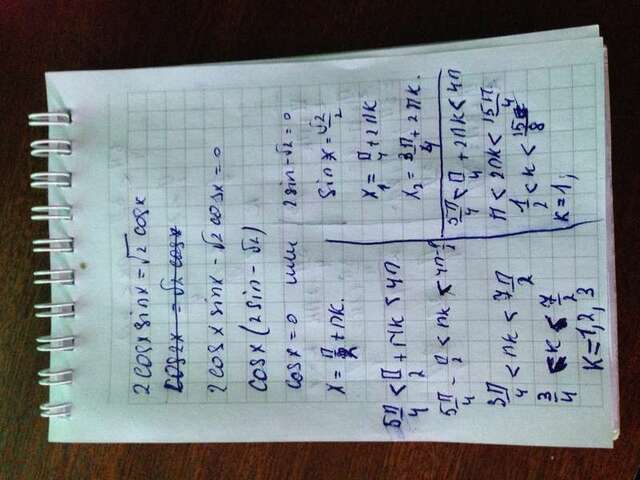 2cosx sinx = √2 cosx
cos2x = √2 cosx
2cosx sinx - √2 cosx = 0
cosx (2sin - √2)
cosx = 0 или 2sin - √2 = 0
x = π/2 + πk.
sinx = √2/2
x₁ = π/4 + 2πk
x₂ = 3π/4 + 2πk.
5π/4 < π/2 + πk < 4π
5π/4 - π/2 < πk < 4π - π/2
3π/4 < πk < 7π/2
3/4 < k < 7/2
k = 1, 2, 3
5π/4 < π/4 + 2πk < 4π
π < 2πk < 15π/4
1/2 < k < 15/8
k = 1,